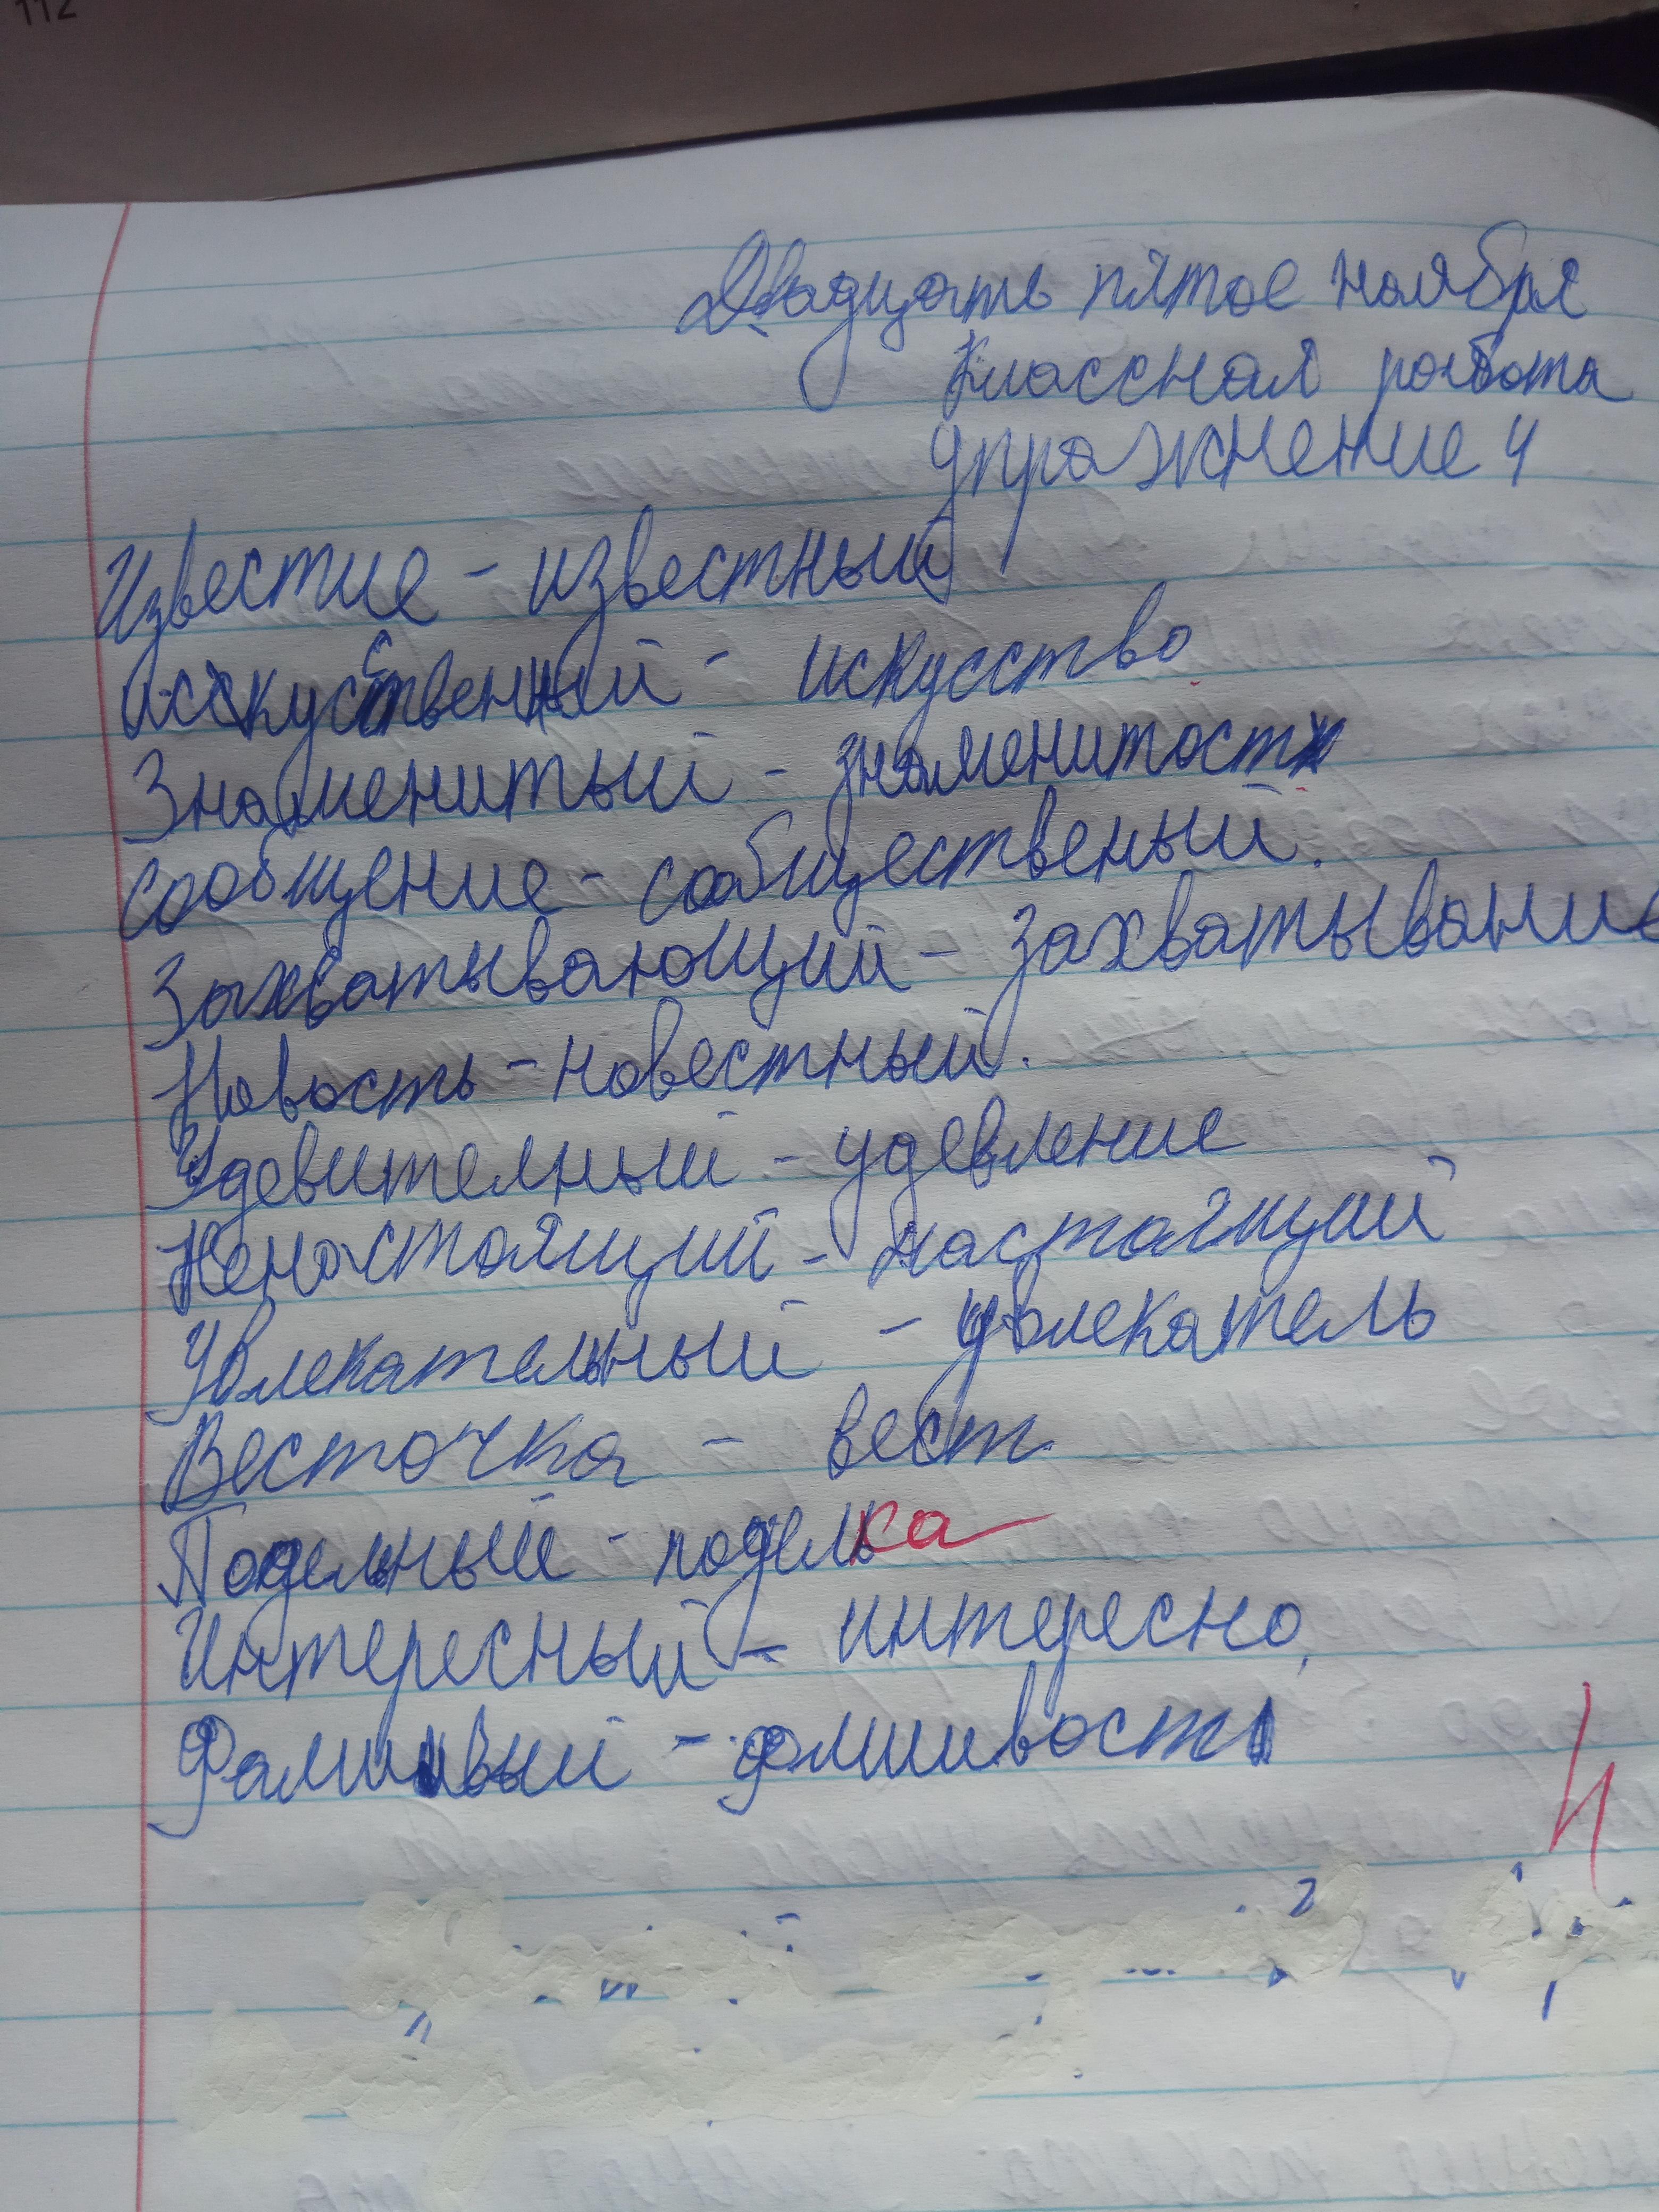 112
Двадцать пятое ноября
Классная работа
Упражнение 4
Известие - известный
Исскуственный - искусство
Знаменитый - знаменитость
Сообщение - сообщественый.
Захватывающий - захватывание
Новость - новестный.
Удевителный - удевление
Ненастоящий - настоящий
Увлекательный - увлекатель
Весточка - вест
Подельный - поделька
Интересный - интересно,
Фальшивый - фалшивость
Ч